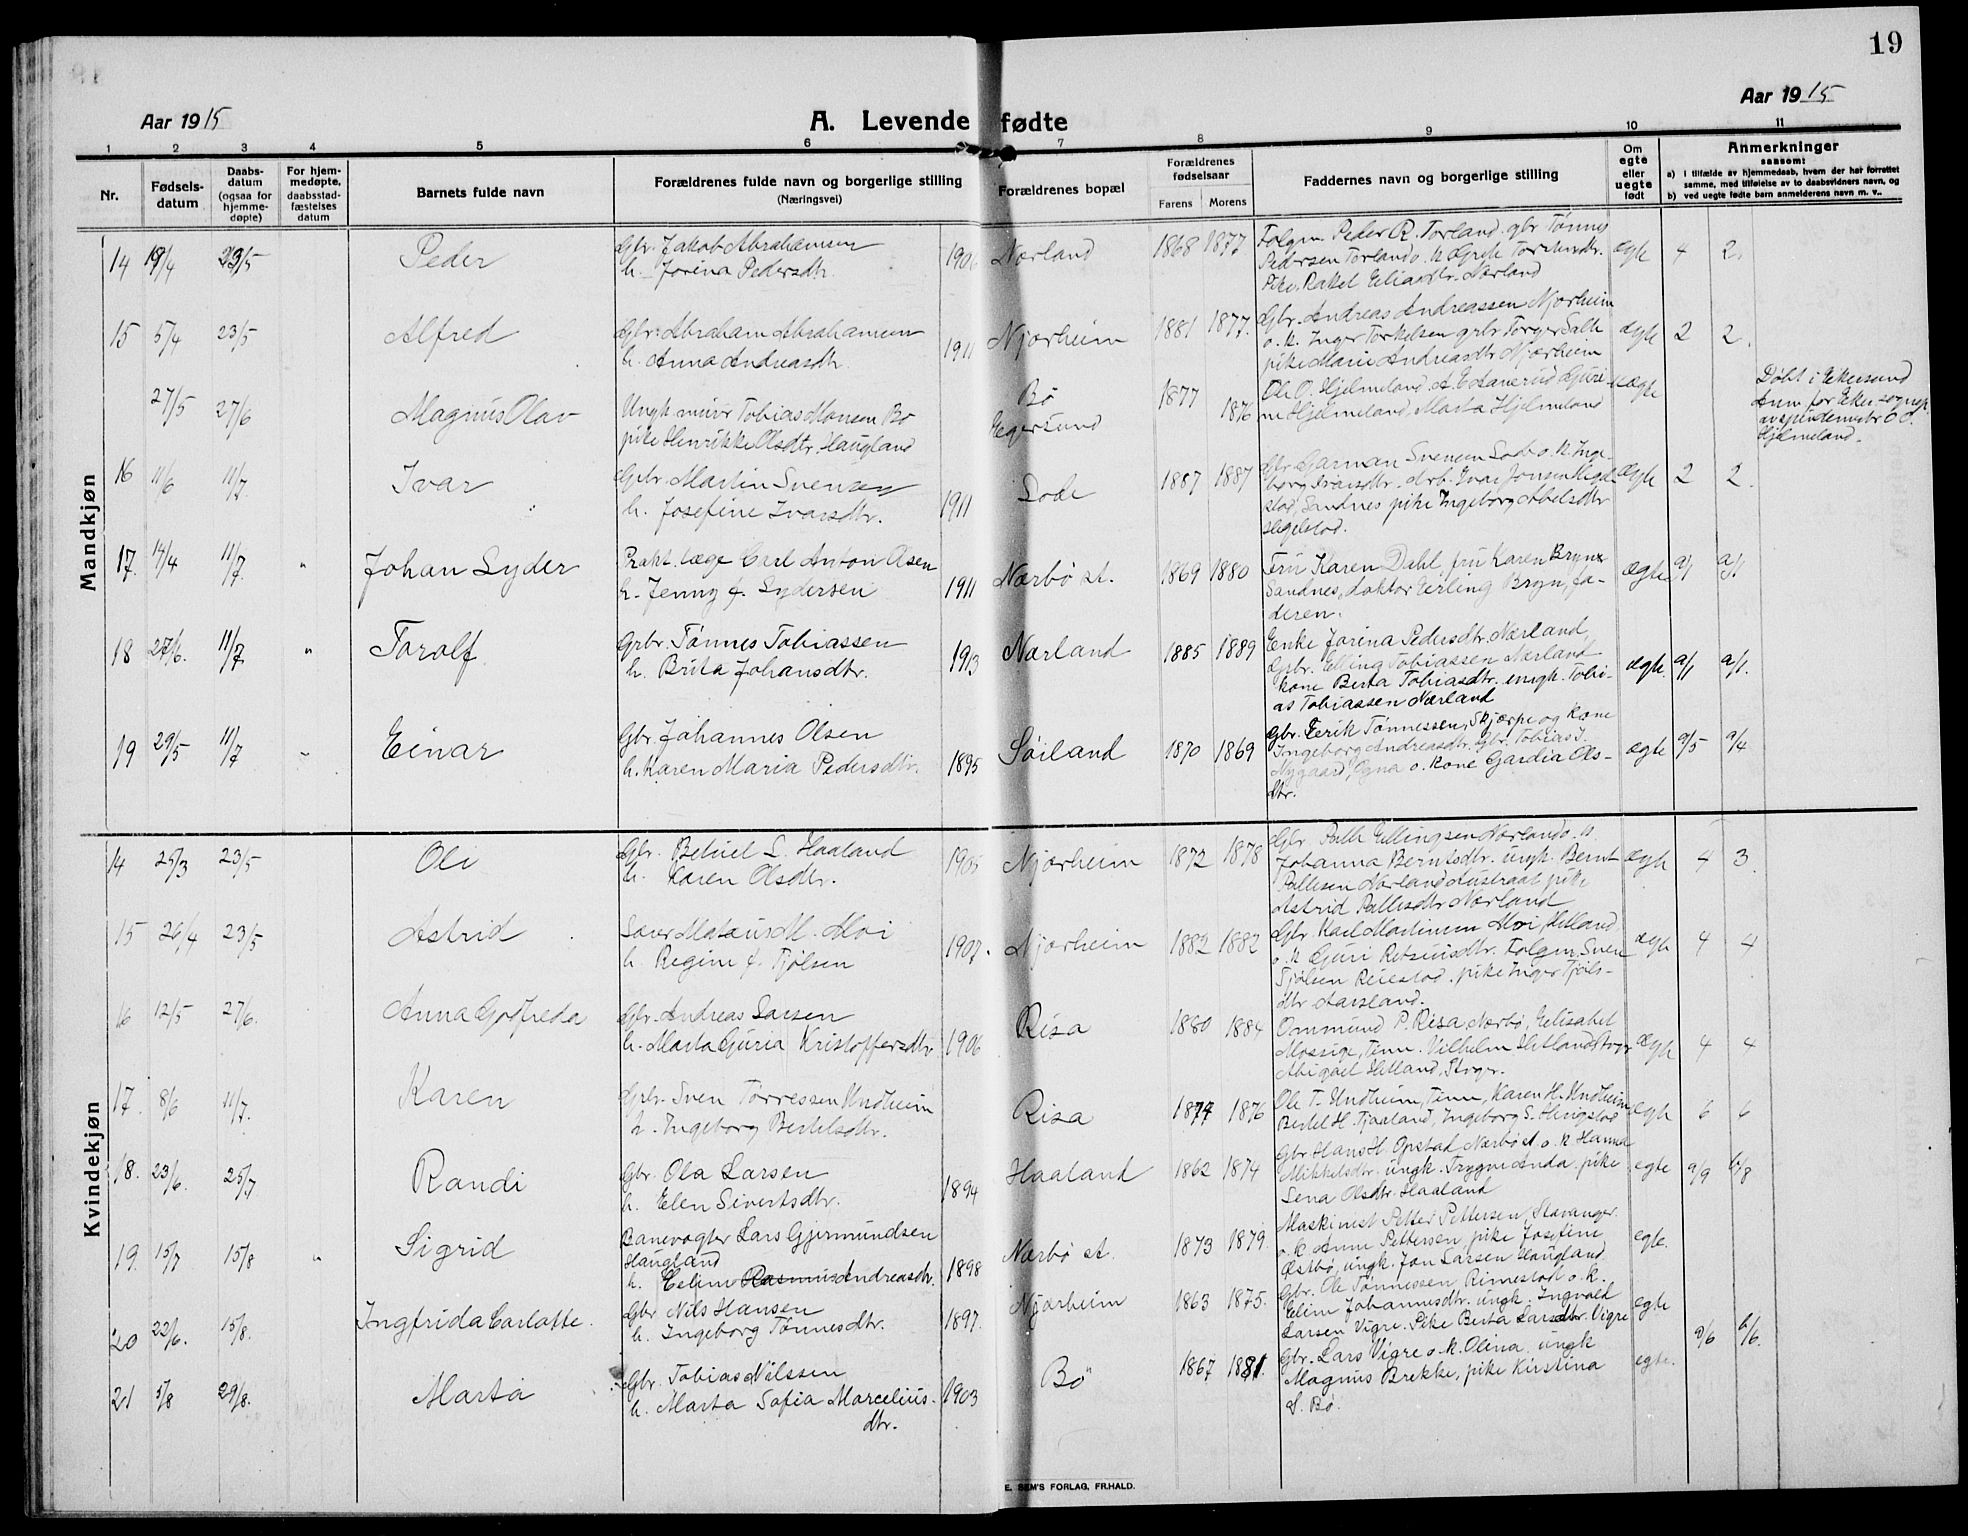 19
Aar 1915
A. Levende fødte
Aar 1915
1 2 3 4 5 6 7 8 9 10 11
Nr.
Fødsels-
datum
Daabs-
datum
(ogsaa for
hjemme-
døpte)
For hjem-
medøpte,
daabsstad-
fæstelses
datum
Barnets fulde navn
Forældrenes fulde navn og borgerlige stilling
(Næringsvei)
Forældrenes bopæl
Forældrenes
fødselsaar
Farens Morens
Faddernes navn og borgerlige stilling
Om
egte
eller
uegte
født
Anmerkninger
saasom:
a) I tilfælde av hjemmedaab, hvem der har forrettet
samme, med tilføielse av to daabsvidners navn, og
b) ved uegte fødte barn anmelderens navn m. v..
Mandkjøn
14 19/4 23/5 Peder
Gbr. Jakob Abrahamsen
h. Jorina Pedersdtr.
Nærland 1868 1877
Folgm. Peder R. Torland. gbr Tønnes
Pedersen Torland o. k
Pike. Rakel Eliasdtr. Nærland
ægte 4 2.
15 5/4 23/5 Alfred
Gbr. Abraham Abrahamsen
h. Anna Andreasdtr.
1911 Njærheim 1881 1877.
Gbr. Andreas Andreassen Njærheim
o. k. Inger Torkelsen grbr Torger Salte
pike Marie Andreasdtr Njærheim
ægte 2 2.
27/5 27/6 Magnus Olav
Ungk. murer Tobias Monsen Bø
pike Henrikke Olsdtr. Haugland
Bø
Egersund
1877 1876
Ole O. Hjelmeland. A. E Aanerud
Hjelmeland, Marta Hjelmeland
uægte
Døbt i Ekersund
Hjelmeland.
16 11/6 11/7. Ivar
Grbr. Martin Svensen
h. Josefine Ivarsdtr.
1911 Lode 1887 1887
Gbr Garman Svensen Lode o. k. Inge-
borg Ivarsdtr.
Sandnes pike Ingeborg Abelsdtr
ægte 2 2.
17. 14/4 11/7. " Johan Lyder
Prakt. læge Carl Anton Olsen
h. Jenny f. Lydersen
1911 Nærbø st. 1869 1880
Fru Karen Dahl, fru Karen Bryn
Sandnes, doktor Erling Bryn, fa-
deren.
ægte a/1 a/1
18 27/6. 11/7 " Torolf.
Grbr. Tønnes Tobiassen
h. Brita Johansdtr.
1913 Nærland 1885 1889
Enke Jorina Pedersdtr. Nærland,
Grbr. Elling Tobiassen Nærland
kone Berta Tobiasdtr. ungk. Tobi-
as Tobiassen Nærland
ægte. a/1 a/1.
19 29/5 11/7 " Einar
Gbr. Johannes Olsen
h. Karen Maria Pedersdtr.
1895 Søiland 1870 1869
Gbr. Eerik Tønnessen, Skjærpe og kone
Ingeborg Andreasdtr. Gbr. Tobias J.
Nygaard, Ogna o. kone Gardia Ols-
dtr.
ægte a/5 a/4
Kvindekjøn
14 25/3 23/5 Oli
Gbr. Betuel L. Haaland
h. Karen Olsdtr.
1905 Njærheim 1872 1878
Gbr Palle Ellingsen Nærland o. k.
Johanna Berntsdtr. ungk. Bernt
Pallesen Nærland pike
Astrid Pallesdtr Nærland
ægte 4 3
15 26/4 23/5 Astrid
Mataus M. Moi
h. Regine f. Tjølsen
1907. Njærheim 1882 1882
Gbr. Karl Martinsen Moi, Hetland
o. k Guri Folgm. Sven
Tjølsen pike Inger Tjøls-
dtr Aarsland.
ægte 4 4
16 12/5 27/6. Anna Godfreda
Gbr. Andreas Larsen
h. Marta Guria Kristoffersdtr
1906 Risa 1880 1884
Ommund P. Risa, Nærbø, Elisabet
Mossige, Time. Vilhelm Hetland
Abigael Hetland,
ægte 4 4
17. 8/6 11/7. Karen
Grbr. Sven Torressen Undheim
h. Ingeborg Bertelsdtr.
Risa 1874 1876
Ole T. Undheim, Time, Karen H. Undheim
Bertel H. Tjaaland, Ingeborg S.
ægte 6 6
18. 23/6. 25/7 Randi
Gbr. Ola Larsen
h. Elen Sivertsdtr.
1894 Haaland 1862 1874
Gbr Hans H. Opstad, Nærbø st. o. k Hanna
Mikkelsdtr. ungk. Trygve Anda. pike
Lena Olsdtr. Haaland
egte a/9 b/8
19. 15/7 15/8 " Sigrid
Banevogter Lars Gjermundsen
Haugland
h. Eeline Rasmus Andreasdtr.
1898 Nærbø st. 1873 1879.
Maskinist Petter Pettersen, Stavanger
o. k Anne Pettersen, pike Josefine
Østbø, ungk. Jon Larsen Haugland.
egte.
20 22/6. 15/8. Ingfrida Carlotte.
Gbr Nils Hansen
h. Ingeborg Tønnesdtr.
1897. Njærheim 1863 1875.
Gbr. Ole Tønnessen, Rimestad o. k.
Eline Johannesdtr. ungk. Ingvald
Larsen Vigre. Pike Berta Larsdtr. Vigre
egte a/6 b/6.
21 5/8 29/8. Marta
Gbr. Tobias Nilssen
h. Marta Sofia Marcelius-
dtr.
1903 Bø 1867 1881.
Gbr. Lars Vigre o. k. Olina. ungk
Magnus Brekke, pike Kirstina
S. Bø.
egte.
E. SEM'S FORLAG, FR.HALD.